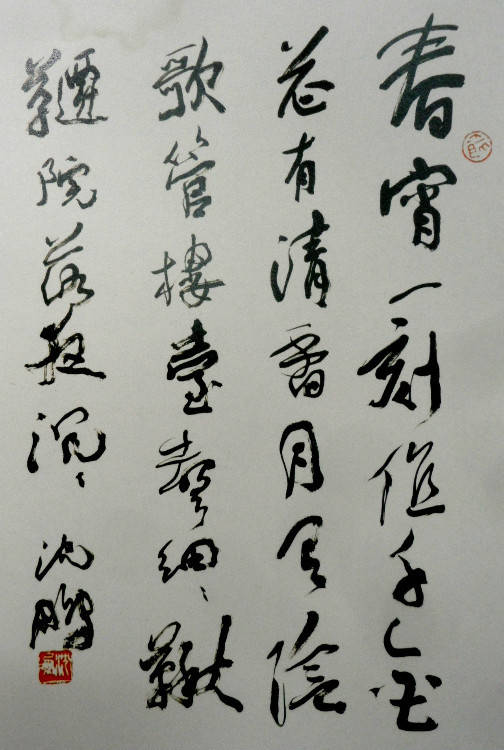 春宵一刻值千金
花有清香月有陰
歌管樓臺聲細〻鞦
韆院落夜沉〻
沈鵬